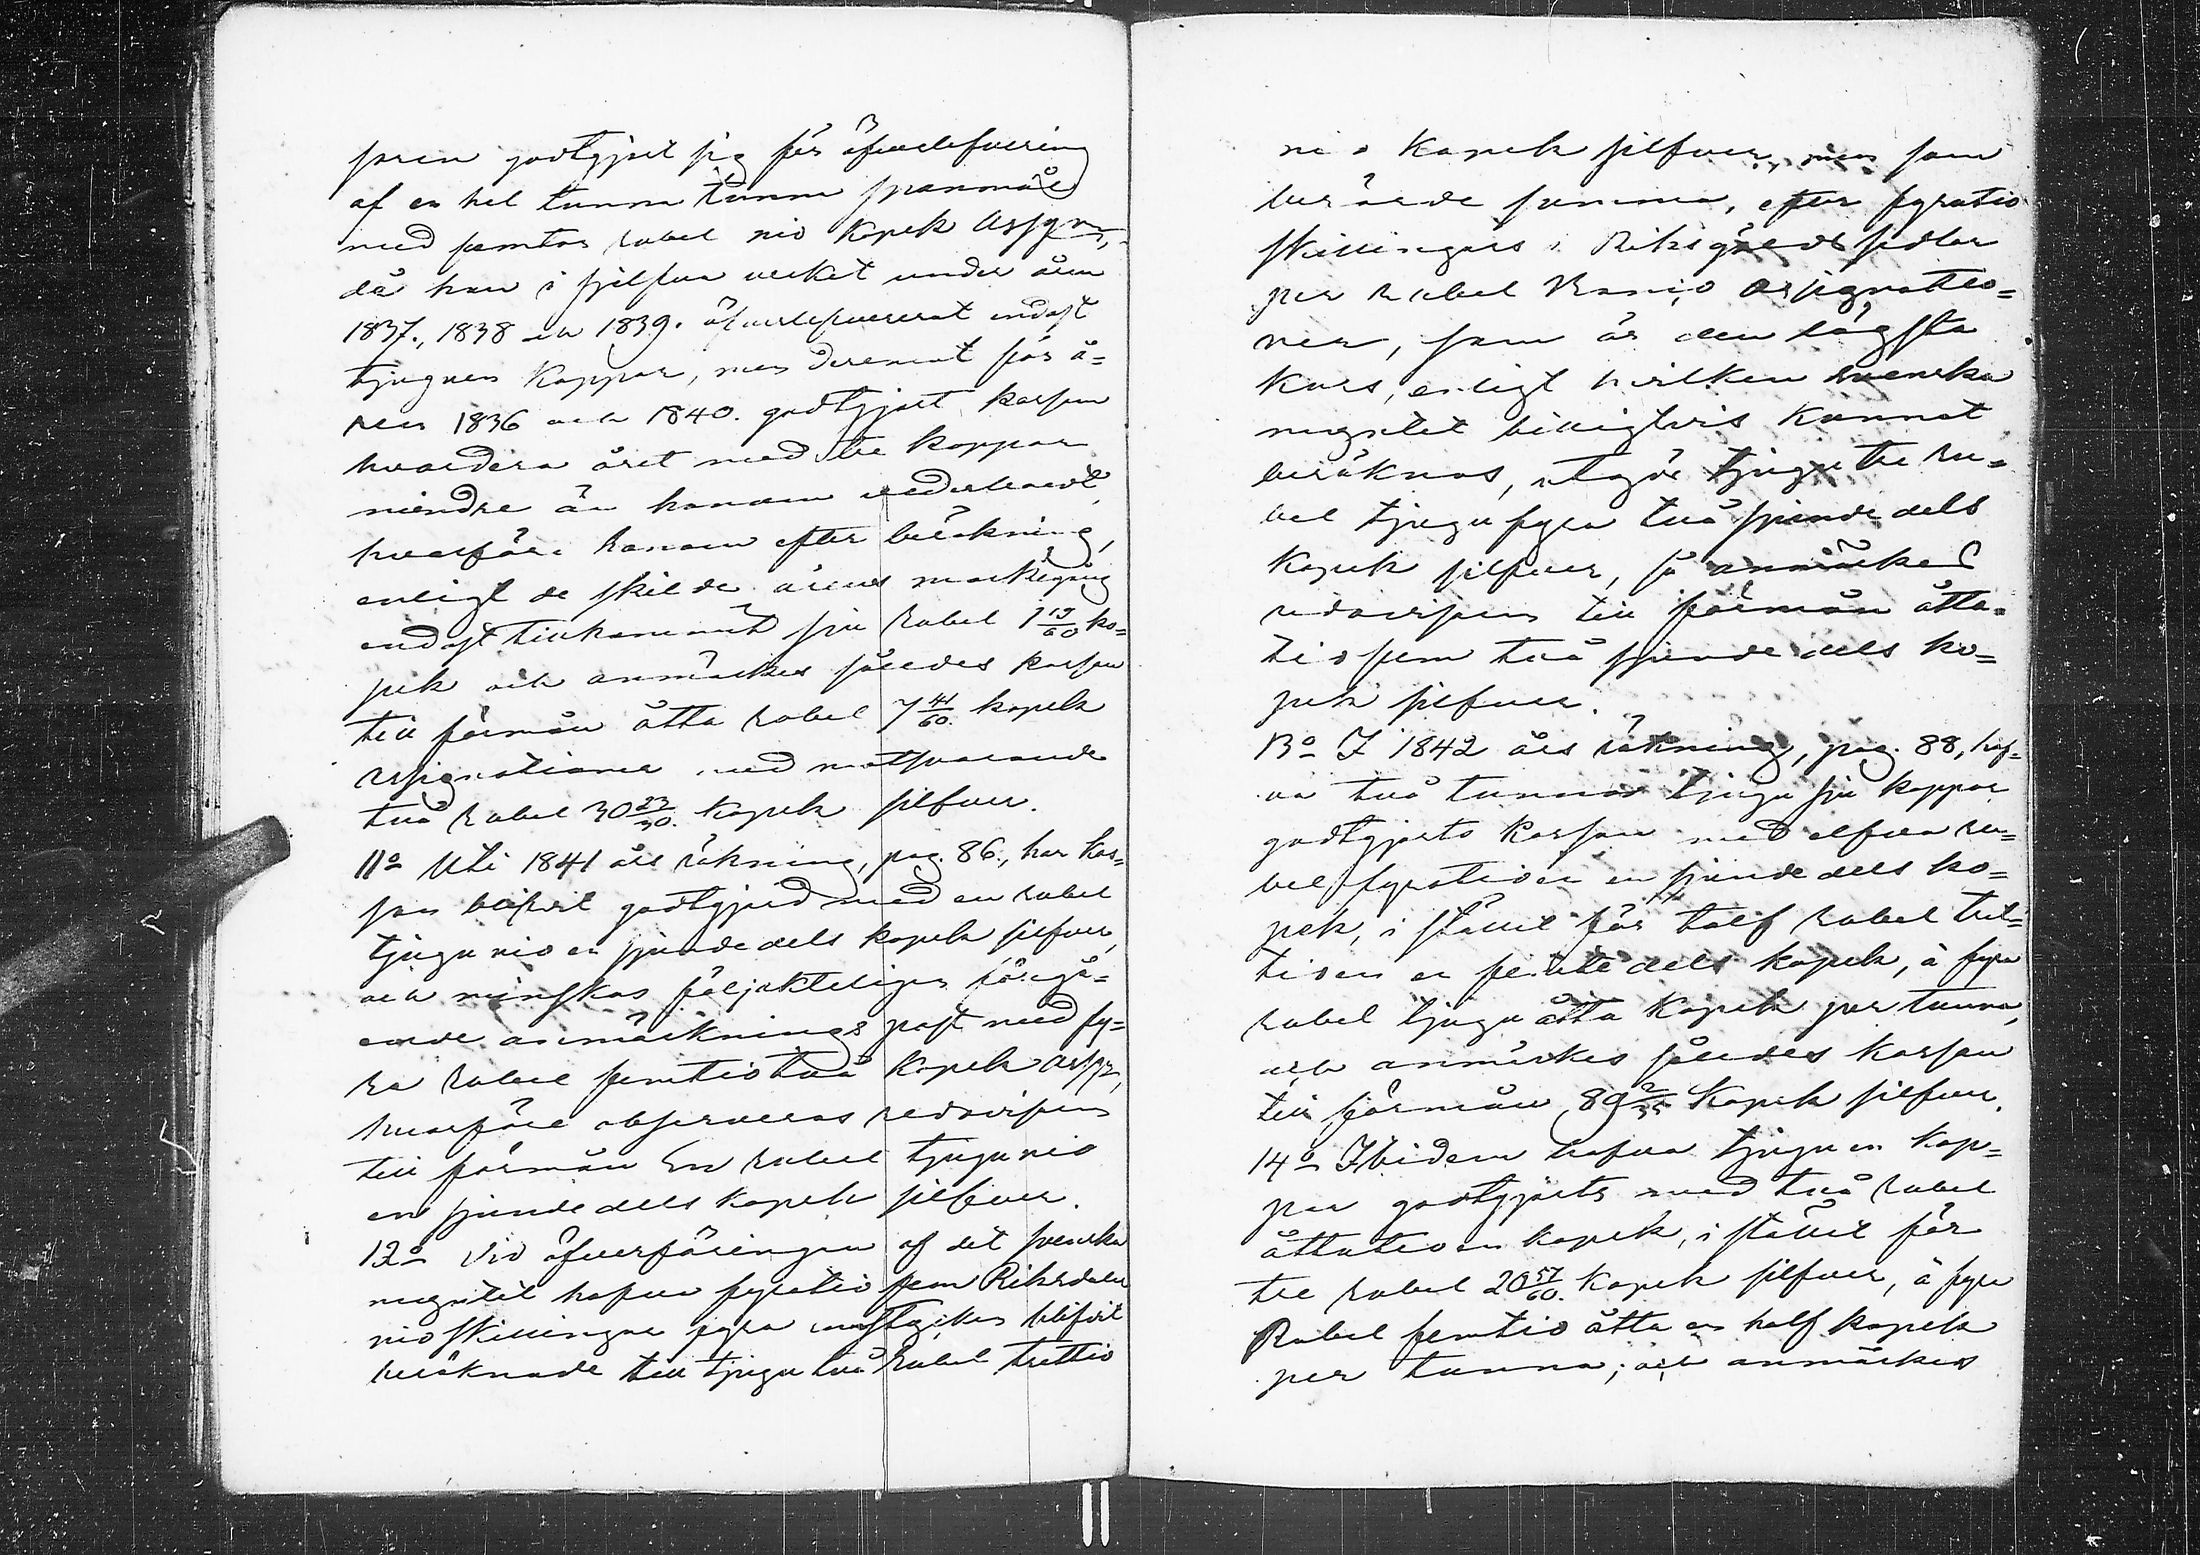 soren godtgjort sig för öfverlefverering
af en hel tunna tunna spanmål
med femton rubel nio kopek Assgn,
då han i sjelfva verket under åren
1837, 1838 och 1839. öfverlefvererat endast
tjuguen kappar, men deremot för å=
ren 1836 och 1840. godtgjort kassan
hvardera året med tre kappar
mindre än honom vederbordt,
hvarföre honom efter beräkning,
enligt de skilde årens markegång
endast tillkommit sju rubel 1 19/60 ko=
pek och anmärkes således kassan
till förmån åtta rubel 7 41/60. kopek
assignationer med motsvarande
två rubel 30 23/30. kopek silfver.
11o Uti 1841 års räkning, pag. 86., har kas=
san blifvit godtgjord med en rubel
tjugu nio en sjundedels kopek silfver,
och minskas följakteligen föregå=
ende anmärknings post med fy=
ra rubel femtiotvå kopek assgn,
hvarföre observeras redovisaren
till förmån En rubel tjugunio
en sjundedels kopek silfver.
12o Vid öfverföringen af det svenska
myntet hafva fyratio fem Riksdaler
nio skillingar fyra runstycken blifvit
beräknade till tjugu två Rubel trettio
nio kopek silfver, men som
berörde summa, efter fyratio
skillingars i Riksgälds sedlar
per rubel Banco assignatio=
ner, som är den lägsta
kurs, enligt hvilken svenska
myntet billigtvis kunnat
beräknas, utgör tjugutre ru=
bel tjugufyra två sjundedels
kopek silfver, så anmärkes
redovisaren till förmån åtta=
tiofem två sjundedels ko=
pek silfver.
13o I 1842 års räkning, pag. 88, haf=
va två tunnor tjugu sju kappar
godtgjorts kassan med elfva ru=
bel fyratioen en sjundedels ko=
pek, i stället för tolf rubel tret=
tioen en femtedels kopek, à fyra
rubel tjuguåtta kopek per tunna,
och anmärkes således kassan
till förmån 89 2/35 kopek silfver.
14o Ibidem hafva tjuguen kap=
par godtgjorts med två rubel
åttatioen kopek, i stället för
tre rubel 20 57/60. kopek silfver, à fyra
Rubel femtio åtta en half kopek
per tunna; och anmärkes